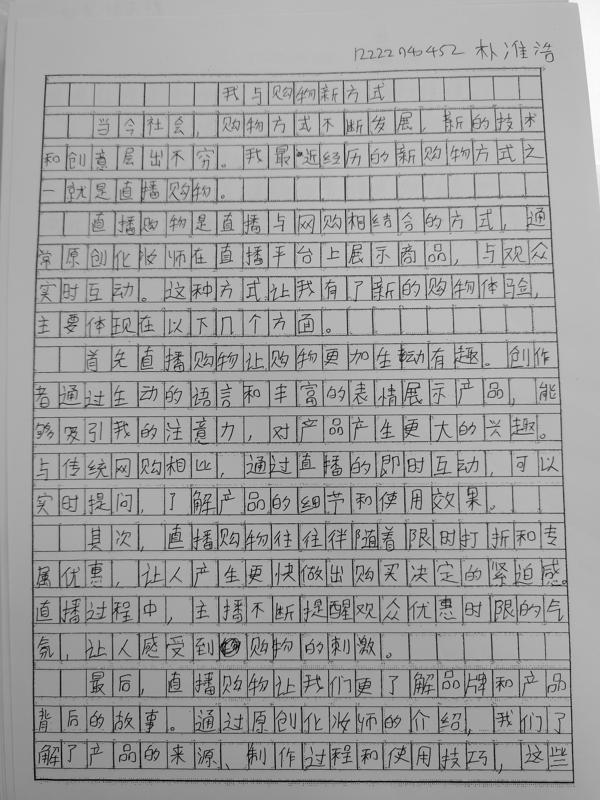 12222740452 朴准浩
我与购物新方式
当今社会，购物方式不断发展，新的技术
和创意层出不穷。我最近经历的新购物方式之
一就是直播购物。
直播购物是直播与网购相结合的方式，通
常原创化妆师在直播平台上展示商品，与观众
实时互动。这种方式让我有了新的购物体验，
主要体现在以下几个方面。
首先直播购物让购物更加生动有趣。创作
者通过生动的语言和丰富的表情展示产品，能
够吸引我的注意力，对产品产生更大的兴趣。
与传统网购相比，通过直播的即时互动，可以
实时提问，了解产品的细节和使用效果。
其次，直播购物往往伴随着限时打折和专
属优惠，让人产生更快做出购买决定的紧迫感。
直播过程中，主播不断提醒观众优惠时限的气
氛，让人感受到购物的刺激。
最后，直播购物让我们更了解品牌和产品
背后的故事。通过原创化妆师的介绍，我们了
解了产品的来源、制作过程和使用技巧，这些